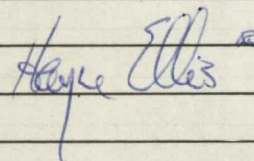 Hayne Ellis